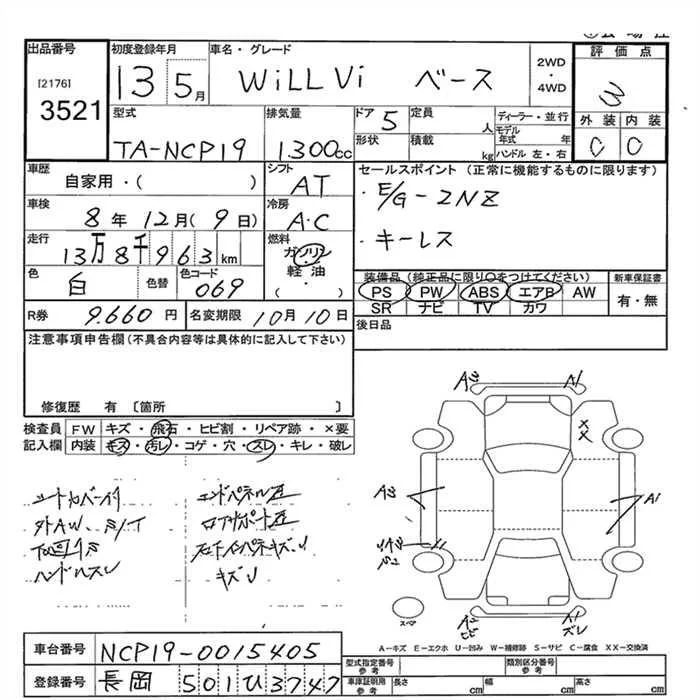 出品番号
[2176]
3521
初度登録年月
13 5月
車名・グレード
WiLL Vi ベース
2WD
・
4WD
評価点
3
外装 内装
C C
型式
TA-NCP19
排気量
1300cc
ドア 5
形状
定員 人
積載 kg
ディーラー・並行
モデル年式 年
ハンドル 左・右
車歴
自家用・( )
シフト
AT
車検
8年 12月( 9日)
冷房
A・C
走行
13万8千963km
燃料
ガソリン
軽油
・( )
色
白
色替
色コード
069
セールスポイント (正常に機能するものに限ります)
・E/G-2NZ
・キーレス
装備品 (純正品に限り○をつけてください)
PS PW ABS エアB AW
SR ナビ TV カワ
新車保証書
有・無
R券 9.660円
名変期限 10月10日
後日品
注意事項申告欄(不具合内容等は具体的に記入して下さい)
修復歴 有 [箇所 ]
検査員
記入欄
FW キズ・飛石・ヒビ割・リペア跡・×要
内装 キズ・汚レ・コゲ・穴・スレ・キレ・破レ
シートカバー付
外AW、
下回サビ
ハンドルスレ
エンドパネル
キズ
A1
XX
A1
スペア
A-キズ E-エクボ U-凹み W-補修跡 S-サビ C-腐食 XX-交換済
車台番号 NCP19-0015405
登録番号 長岡 501ひ3747
型式指定番号
参考
類別区分番号
参考
車庫証明用
参考
長さ cm
幅 cm
高さ cm